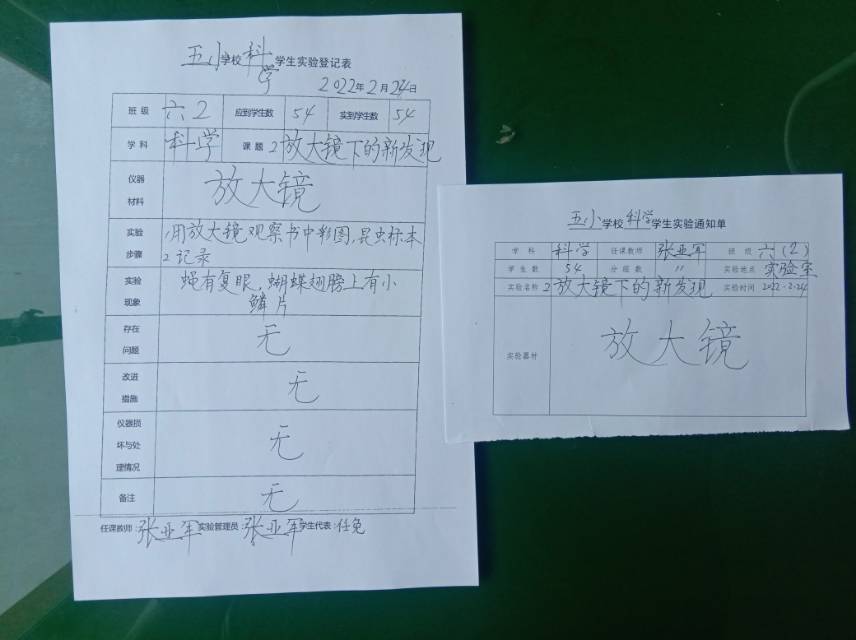 五小学校科学学生实验登记表
2022年2月24日
班级 六2 应到学生数 54 实到学生数 54
学科 科学 课题 2放大镜下的新发现
仪器材料 放大镜
实验步骤 1用放大镜观察书中彩图,昆虫标本
2记录
实验现象 蝇有复眼,蝴蝶翅膀上有小
鳞片
存在问题 无
改进措施 无
仪器损坏与处理情况 无
备注 无
任课教师:张亚军 实验管理员:张亚军 学生代表:任免
五小学校科学学生实验通知单
学科 科学 任课教师 张亚军 班级 六(2)
学生数 54 分组数 11 实验地点 实验室
实验名称 2放大镜下的新发现 实验时间 2022.2.24
实验器材 放大镜